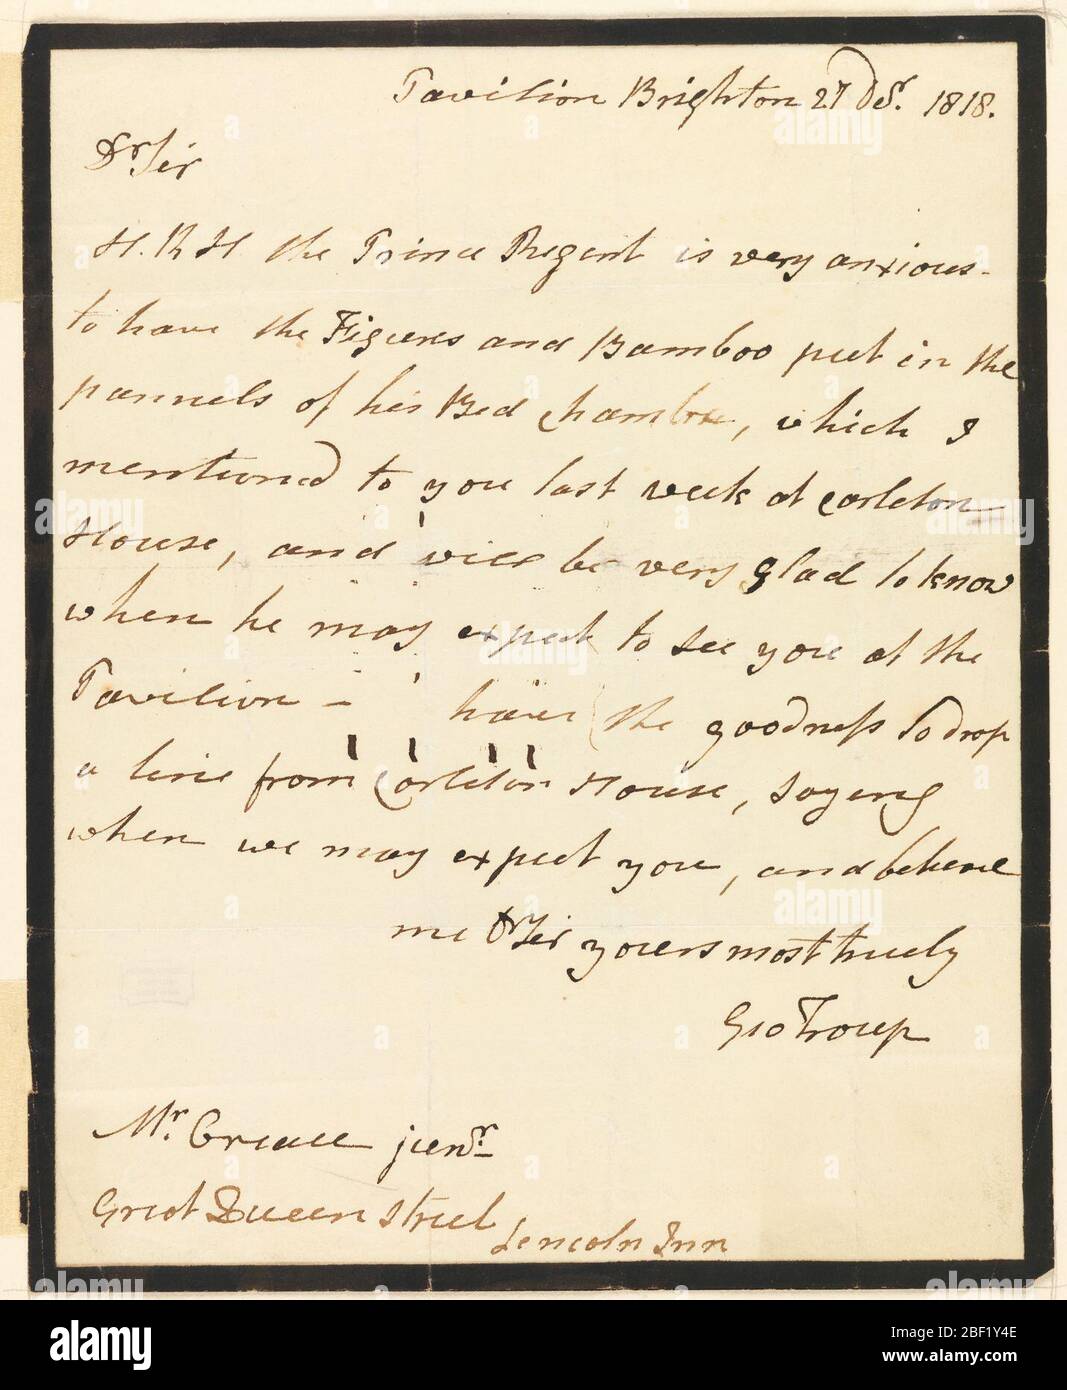 Pavilion Brighton 27 Der. 1818.
Dr Sir
H. R H the Prince Regent is very anxious
to have the Figures and Bamboo put in the
pannels of his Bed Chamber, which I
mentioned to you last week at Carleton
House, and will be very glad to know
when he may expect to see you at the
Pavilion - have the goodness to drop
a line from Carleton House, saying
when we may expect you, and believe
me Dr Sir yours most truely
Geo Troup
Mr. Creace junr.
Great Queen Street
Lincoln Inn
alamy
Image ID: 2BF1Y4E
www.alamy.com